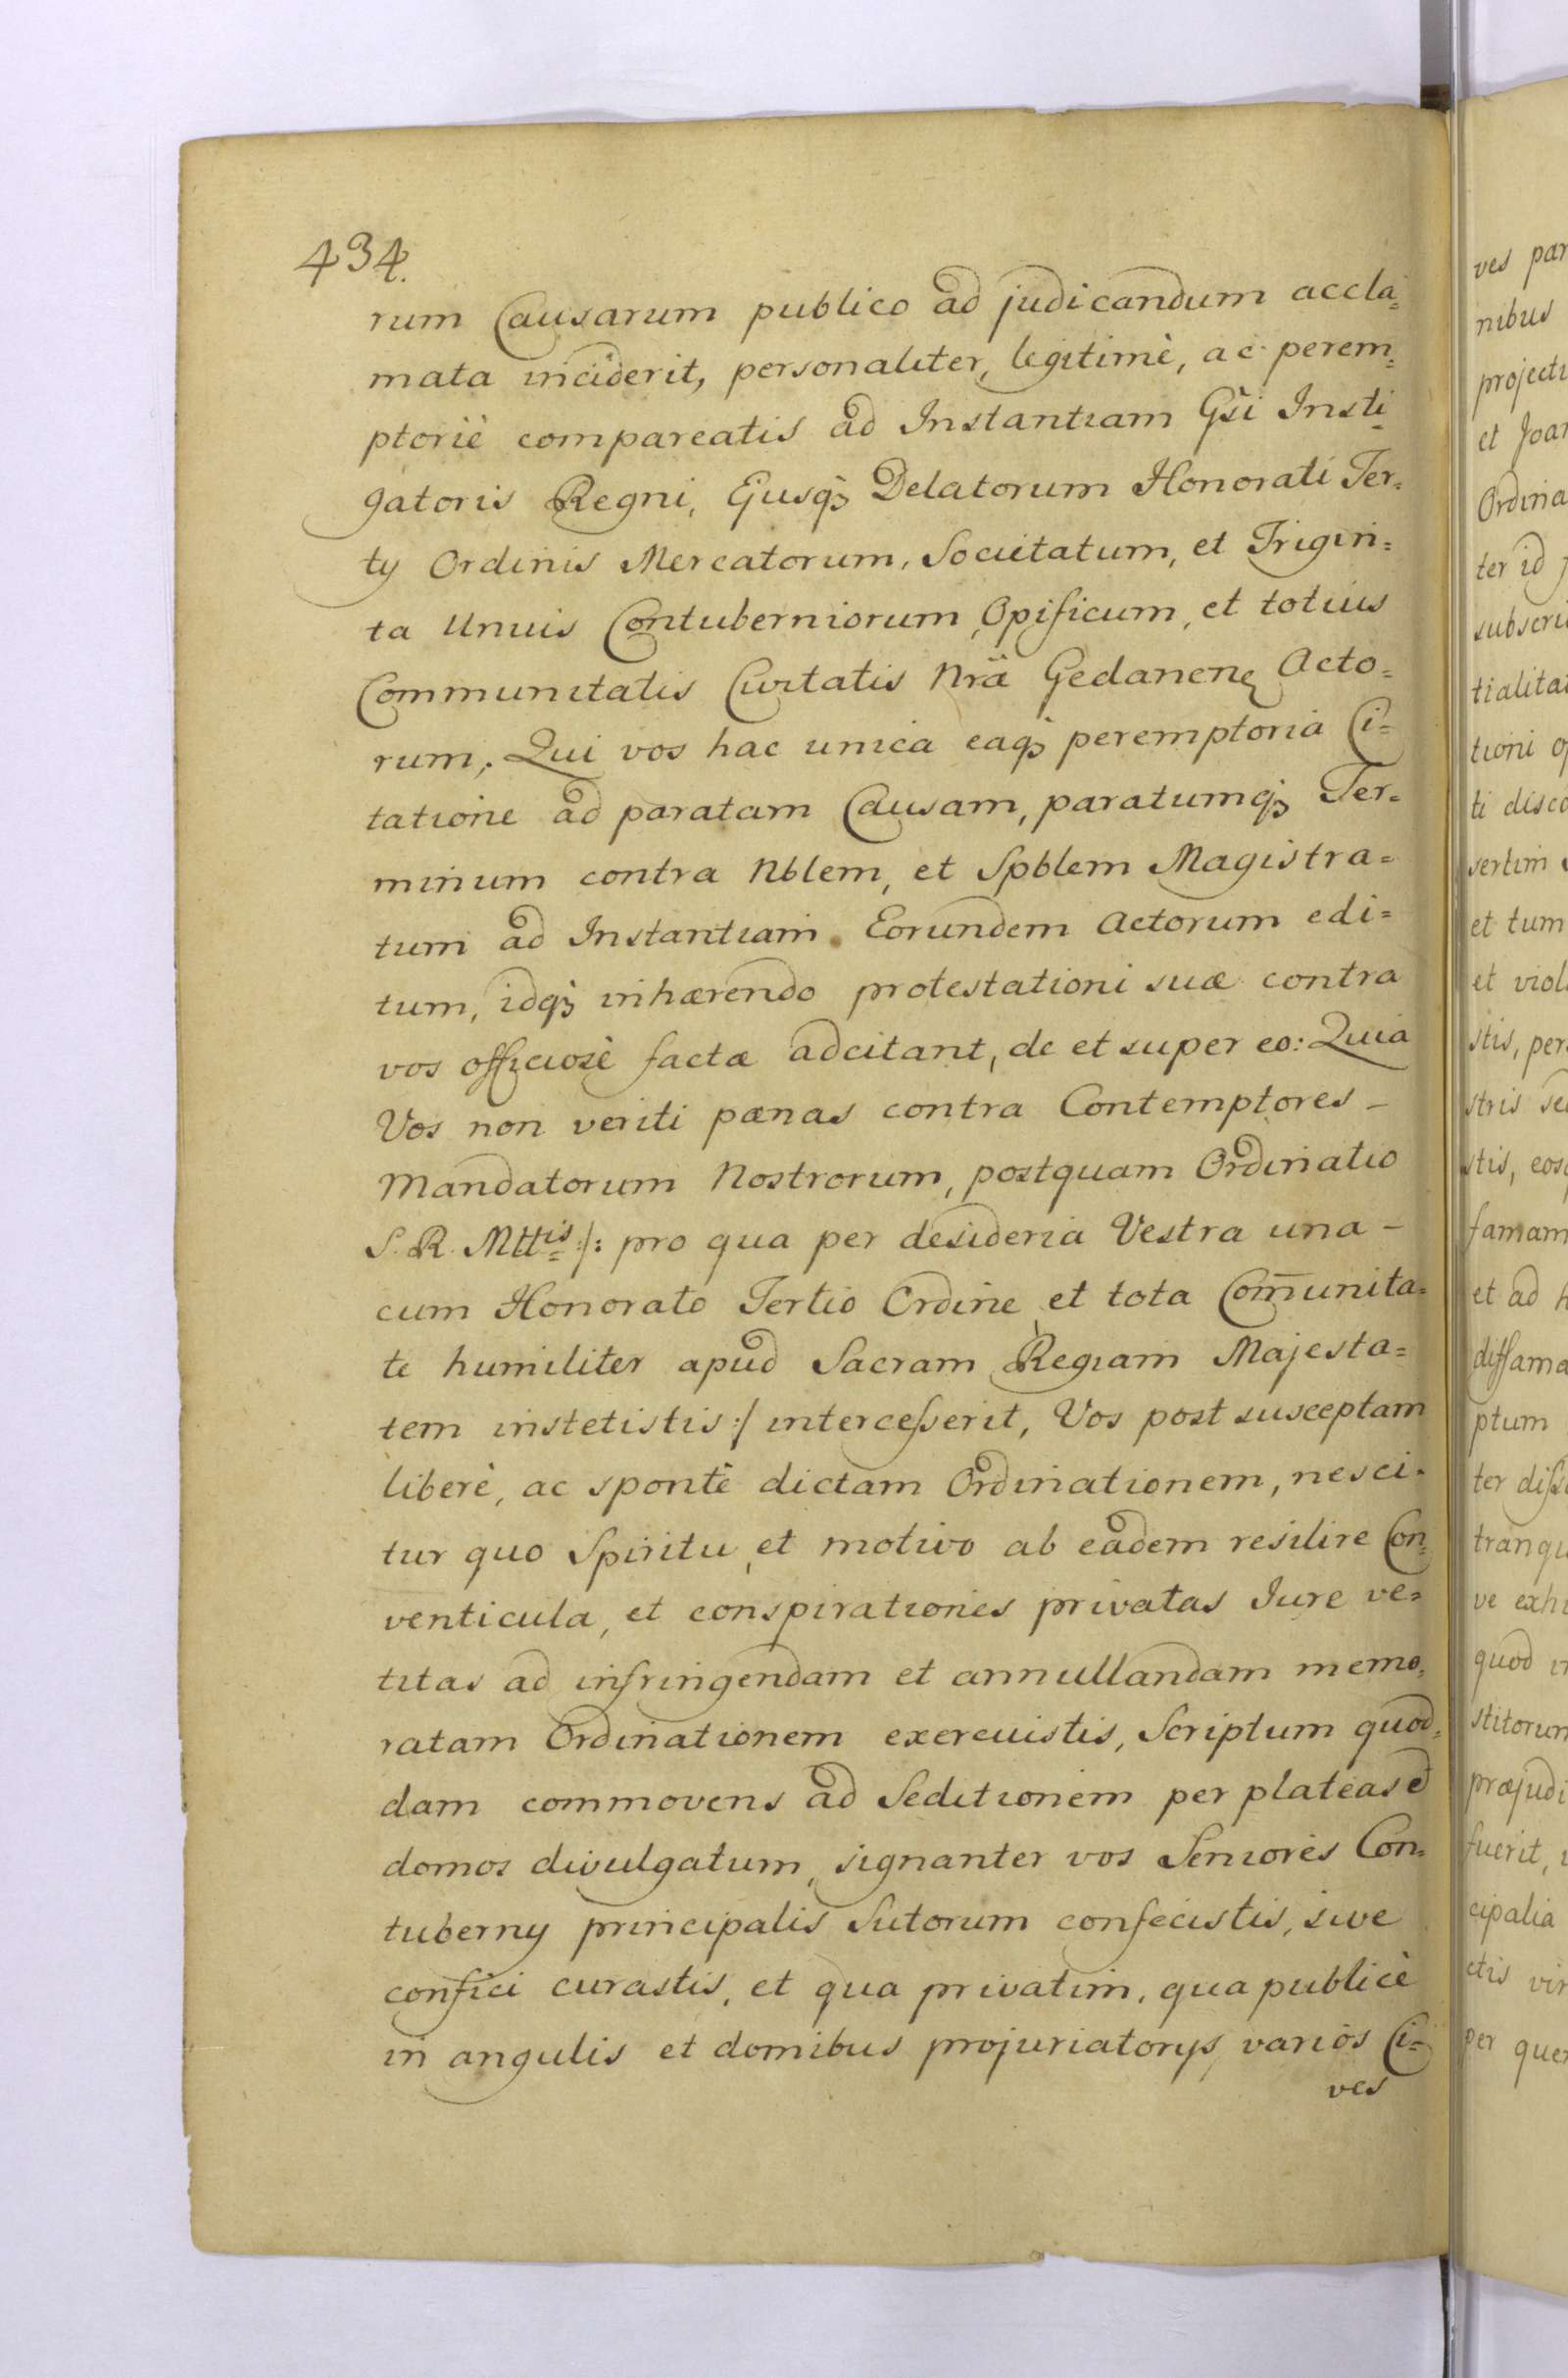 434.
rum Causarum publico ad judicandum accla=
mata inciderit, personaliter, legitimè, ac perem=
ptoriè compareatis ad Instantiam Gsi Insti=
gatoris Regni, Ejusq3 Delatorum Honorati Ter=
tij Ordinis Mercatorum, Societatum, et Trigin=
ta Unius Contuberniorum, Opificum, et totius
Communitatis Civitatis Nrä Gedanen Acto=
rum. Qui vos hac unica eaq3 peremptoria Ci=
tatione ad paratam Causam, paratumq3 Ter=
minum contra Nblem, et Spblem Magistra=
tum ad Instantiam Eorundem Actorum edi=
tum, idq3 inhærendo protestationi suæ contra
vos officiosè factæ adcitant, de et super eo: Quia
Vos non veriti pænas contra Contemptores –
Mandatorum Nostrorum, postquam Ordinatio
S. R. Mttis /: pro qua per desideria Vestra una –
cum Honorato Tertio Ordine et tota Com̄unita=
te humiliter apud Sacram Regiam Majesta=
tem instetistis :/ intercesserit, Vos post susceptam
liberè, ac spontè dictam Ordinationem, nesci=
tur quo Spiritu, et motivo ab eadem resilire Con=
venticula, et conspirationes privatas Jure ve=
titas ad infringendam et annullandam memo=
ratam Ordinationem exercuistis, Scriptum quod=
dam commovens ad Seditionem per plateas et
domos divulgatum, signanter vos Seniores Con=
tubernij principalis Sutorum confecistis, sive
confici curastis, et qua privatim, qua publicè
in angulis et domibus projuriatorijs varios Ci=
ves
ves par
nibus
projecti
et Joan
Ordina
ter id
subscri
tialita
tioni
ti disco
sertim
et tum
et viol
stis, per
stris
stis, eos
famam
et ad
diffama
ptum
ter
tranqu
ve exhi
quod
stitorum
præjudi
fuerit,
cipalia
ctis vir
per quer